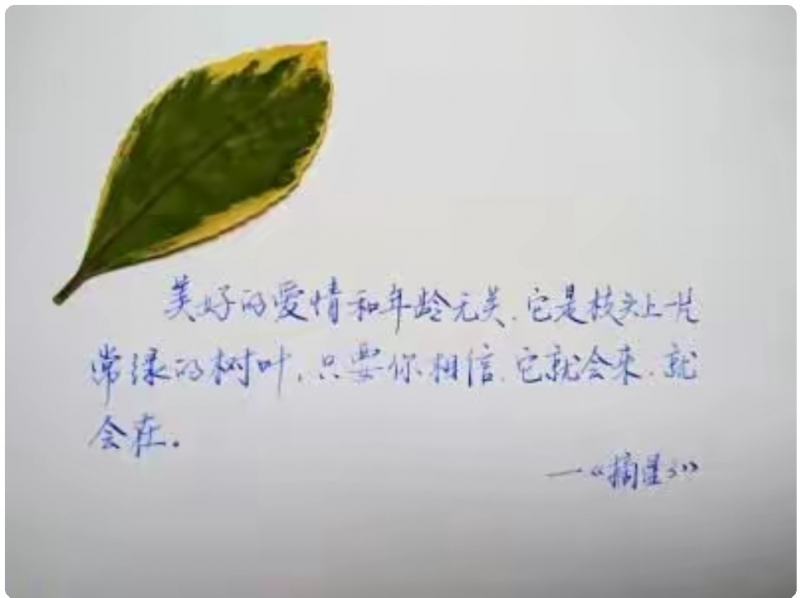 美好的爱情和年龄无关、它是枝头上一片
常绿的树叶，只要你相信、它就会来、就
会在。
—《摘星》